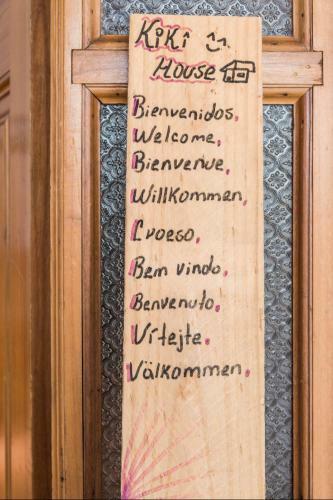 KiKi
House
Bienvenidos,
Welcome,
Bienvenue,
Willkommen,
Cvoeso,
Bem vindo,
Benvenuto,
Vítejte,
Välkommen,